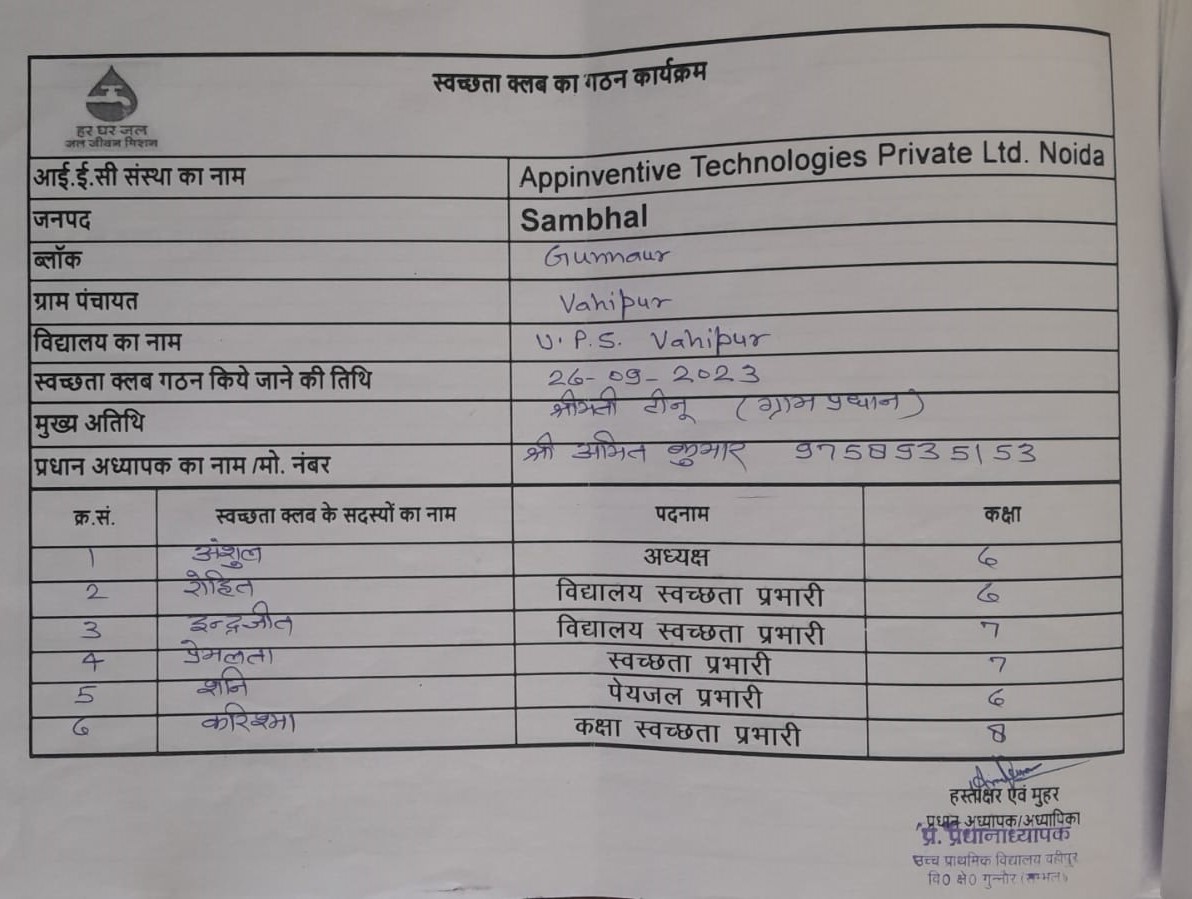 स्वच्छता क्लब का गठन कार्यक्रम
हर घर जल
जल जीवन मिशन
आई.ई.सी संस्था का नाम Appinventive Technologies Private Ltd. Noida
जनपद Sambhal
ब्लॉक Gunnaur
ग्राम पंचायत Vahipur
विद्यालय का नाम U.P.S. Vahipur
स्वच्छता क्लब गठन किये जाने की तिथि 26-09-2023
मुख्य अतिथि श्रीमती टीनू (ग्राम प्रधान)
प्रधान अध्यापक का नाम /मो. नंबर श्री अमित कुमार 9758935153
क्र.सं. स्वच्छता क्लब के सदस्यों का नाम पदनाम कक्षा
1 अंशुल अध्यक्ष 6
2 रोहित विद्यालय स्वच्छता प्रभारी 6
3 इन्द्रजीत विद्यालय स्वच्छता प्रभारी 7
4 प्रेमलता स्वच्छता प्रभारी 7
5 शनि पेयजल प्रभारी 6
6 करिश्मा कक्षा स्वच्छता प्रभारी 8
हस्ताक्षर एवं मुहर
प्रधान अध्यापक/अध्यापिका
प्र. प्रधानाध्यापक
उच्च प्राथमिक विद्यालय वहीपुर
वि0 क्षे0 गुन्नौर (सम्भल)